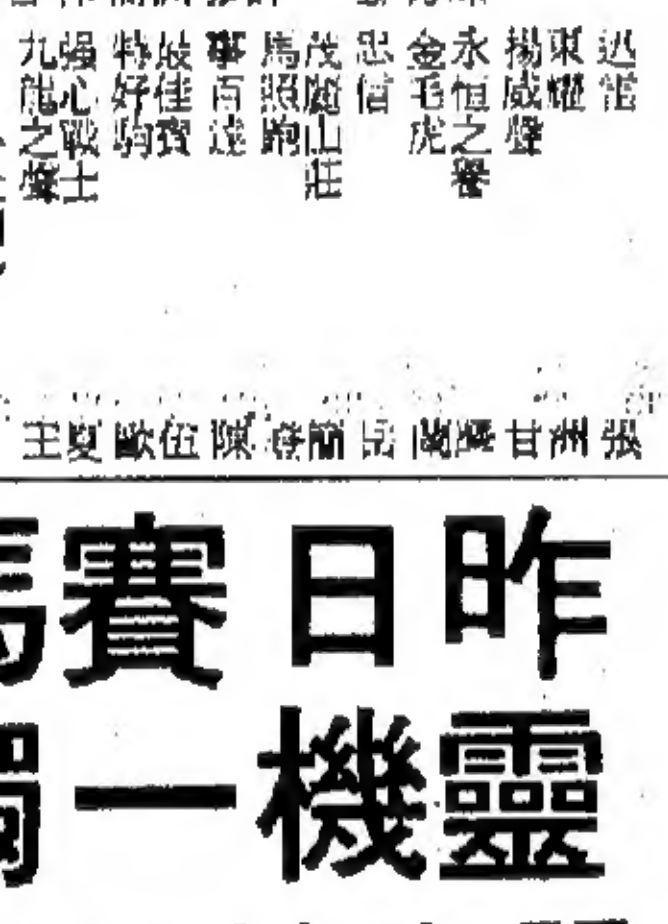 迅雷
東耀
揚威聲
永恒之譽
金毛虎
忠信
茂麗山莊
馬照跑
事百達
最佳寶
特好駒
强心戰士
九龍之聲
張 洲 甘 蘭 岳 簡 陳 伍 歐 夏 王
昨日賽馬
靈機一獨